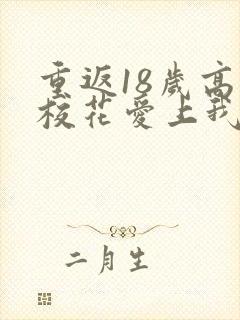 重返18歲高
校花愛上我
二月生